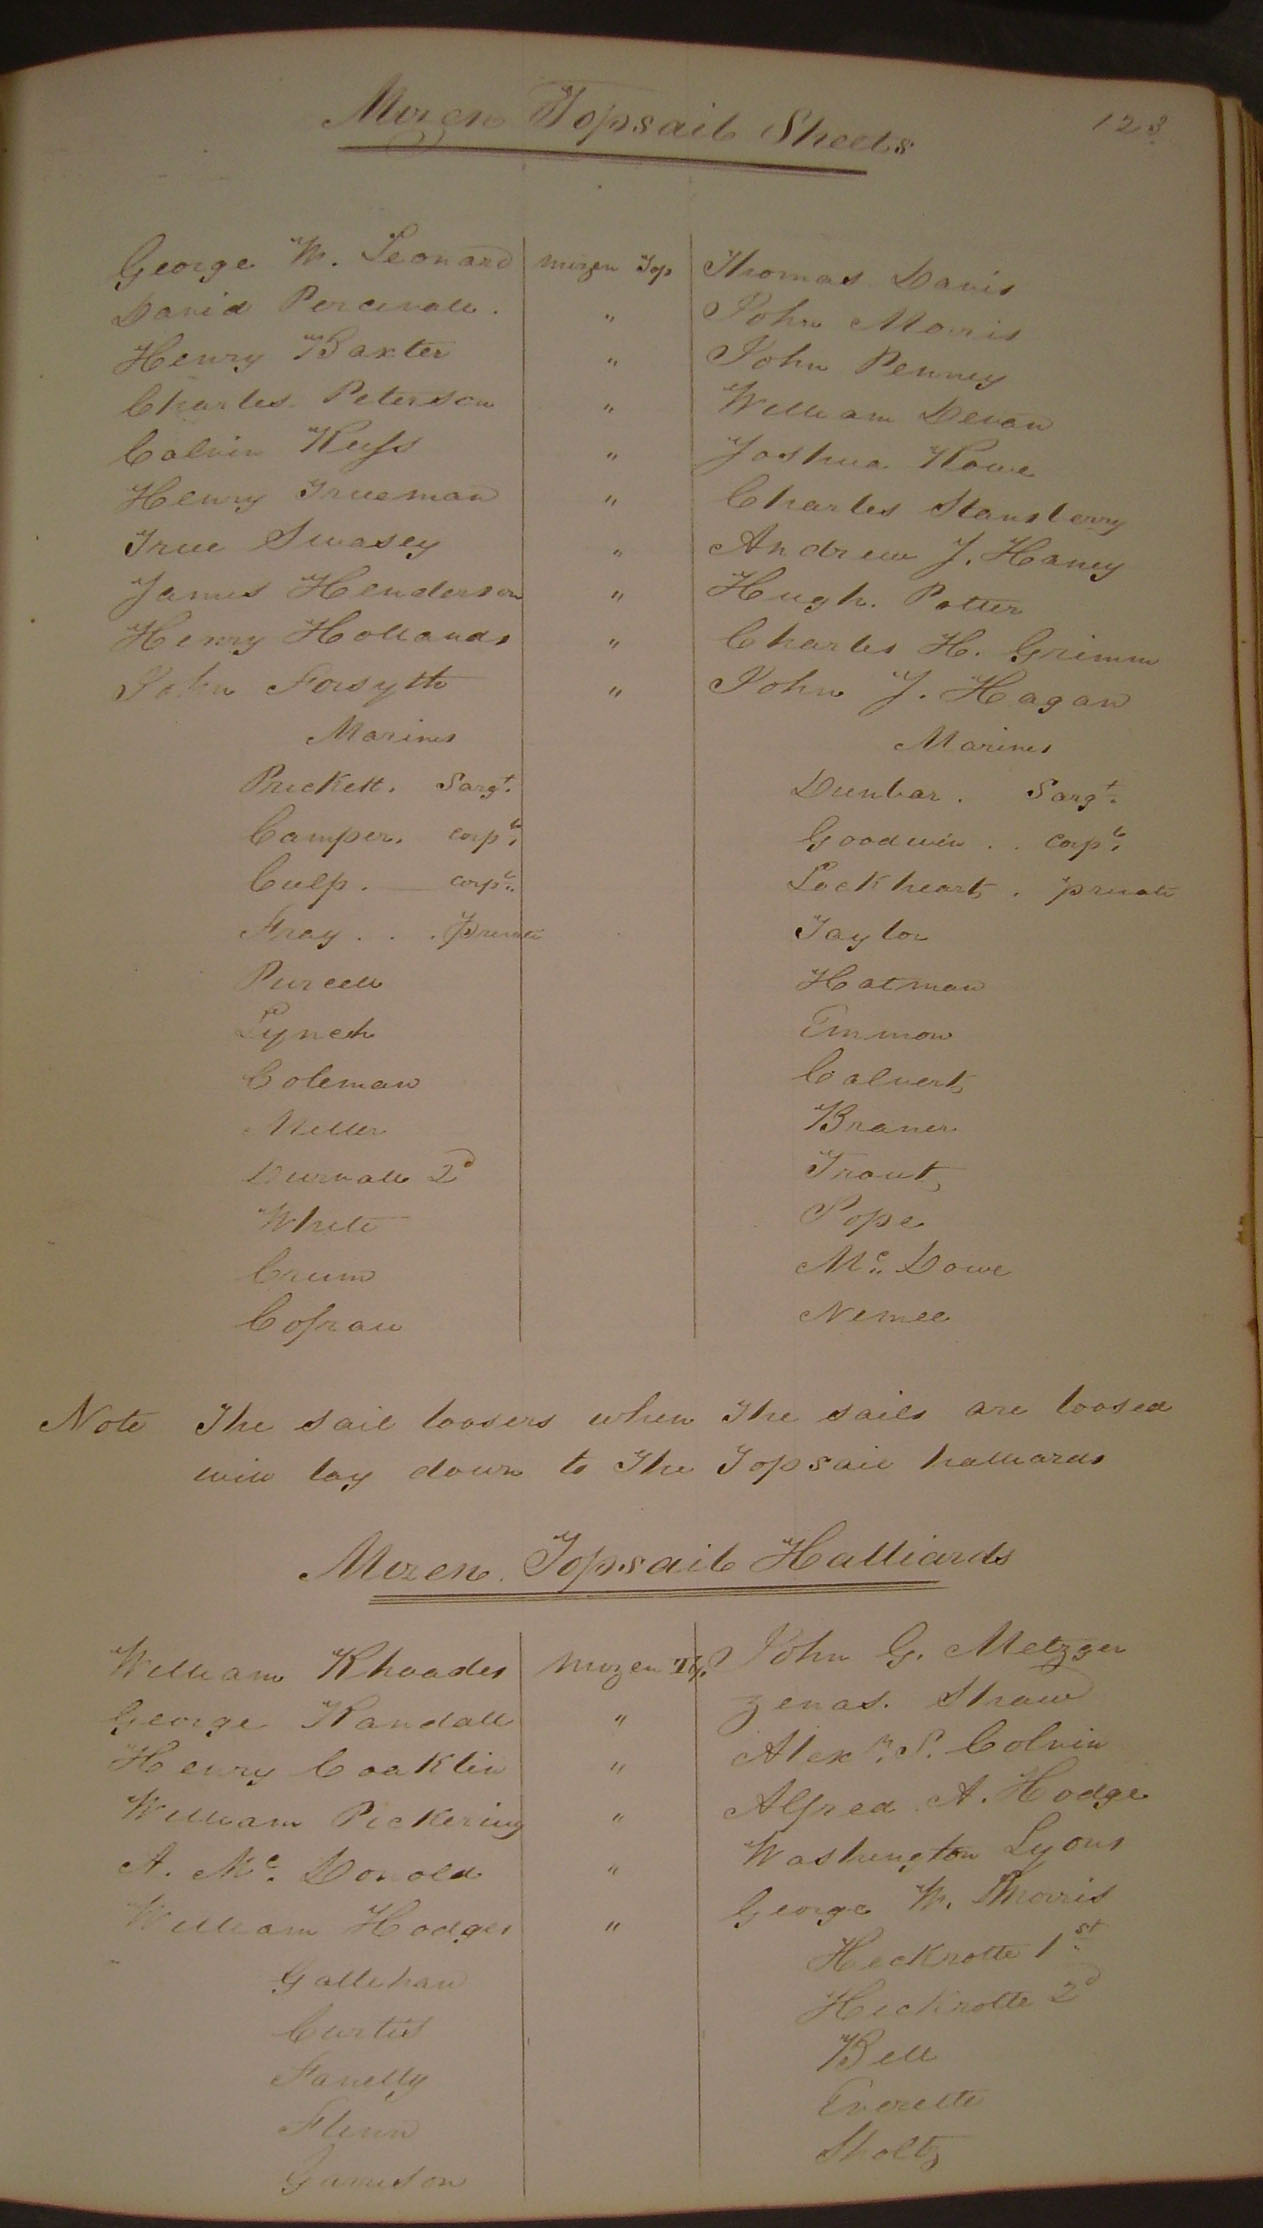 123
Mizen Topsail Sheets
George W. Leonard mizen Top Thomas Davis
David Percivall. " John Morris
Henry Baxter " John Penney
Charles Peterson " William Devan
Calvin Keyss " Joshua Rowe
Henry Trueman " Charles Stansberry
True Swasey " Andrew J. Haney
James Henderson " Hugh. Potter
Henry Hollands " Charles H. Grimm
John Forsyth " John J. Hagan
Marines Marines
Prickett. Sargt. Dunbar. Sargt.
Camper. corpl. Goodwin . . Corpl.
Culp. corpl. Lockheart. private
Fray . . . private Taylor
Purcell Hatman
Lynch Emmon
Coleman Calvert
Miller Braner
Durvall 2d Trout
White Pope
Crum Mc. Dowe
Cofran Nemee
Note The sail loosers when The sails are loosed
will lay down to The Topsail halliards
Mizen Topsail Halliards
William Rhoades Mizen Tp. John G. Metzger
George Randall " Zenas. Straw
Henry Coaklin " Alexr. S. Colvin
William Pickering " Alfred A. Hodge
A. Mc. Donold " Washington Lyons
William Hodges " George W. Morris
Gallihan Heckrotte 1st.
Curtis Heckrotte 2d
Fanelly Bell
Flinn Everette
Jamison Sholtz